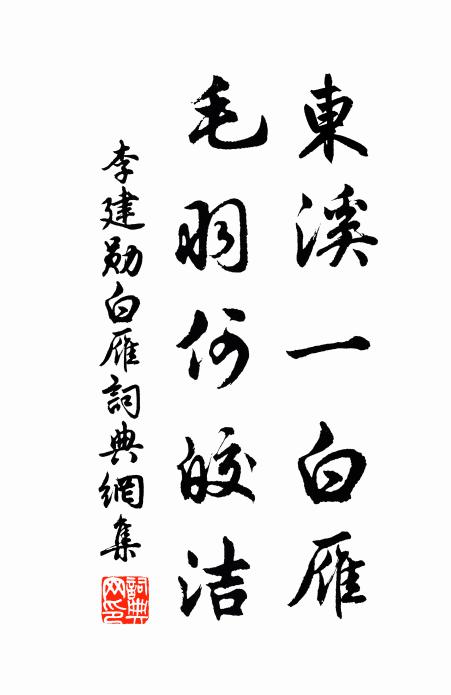 東溪一白雁
毛羽何皎洁
李建勛白雁詞典網集
詞典網印